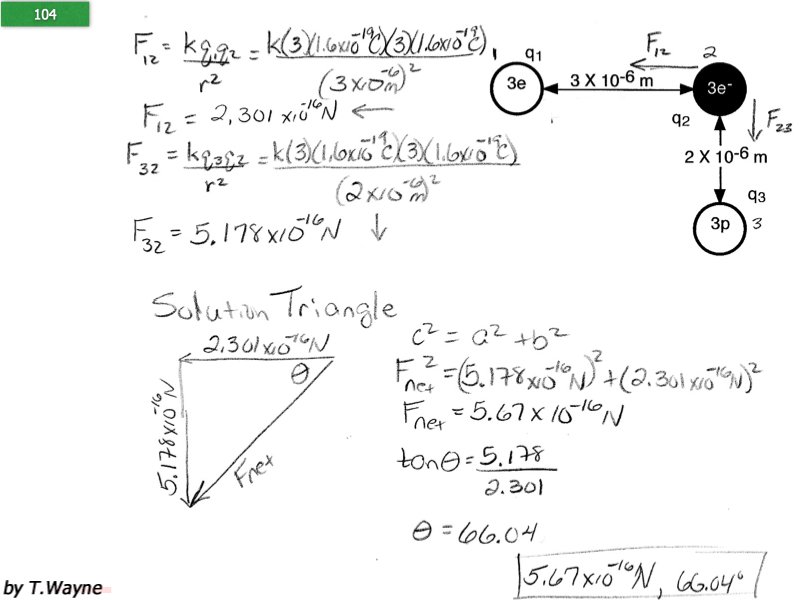 104
F₁₂ = kq₁q₂/r² = k(3)(1.6x10⁻¹⁹C)(3)(1.6x10⁻¹⁹C)/(3x10⁻⁶m)²
F₁₂ = 2.301x10⁻¹⁶N ←
F₃₂ = kq₃q₂/r² = k(3)(1.6x10⁻¹⁹C)(3)(1.6x10⁻¹⁹C)/(2x10⁻⁶m)²
F₃₂ = 5.178x10⁻¹⁶N ↓
1 q1
3e
3 X 10⁻⁶ m
F₁₂ 2
3e⁻
q2
F₂₃
2 X 10⁻⁶ m
q3
3p 3
Solution Triangle
2.301x10⁻¹⁶N
θ
5.178x10⁻¹⁶N
Fnet
c² = a² + b²
Fnet² = (5.178x10⁻¹⁶N)² + (2.301x10⁻¹⁶N)²
Fnet = 5.67 x 10⁻¹⁶N
tanθ = 5.178/2.301
θ = 66.04
5.67x10⁻¹⁶N, 66.04°
by T.Wayne